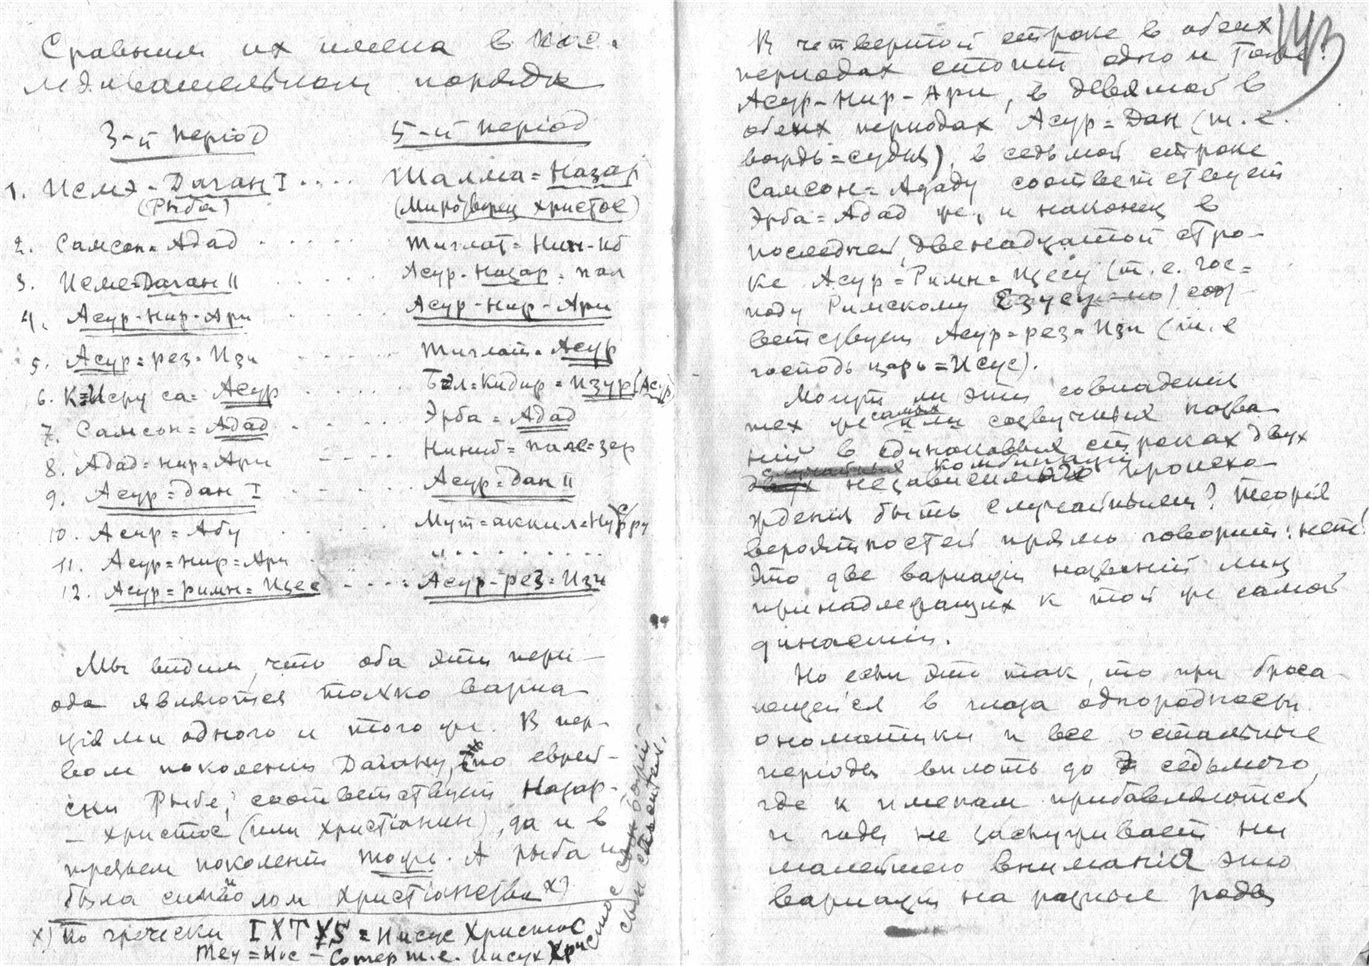 Сравним их имена в пос-
ледовательном порядке
3-й період
5-й період
1. Исмэ-Даган I . . . . Шалма=Назар
(Рыба) (Миротворец Христос)
2. Самсон=Адад . . . . . . Тиглат=Нин-иб
3. Исмэ=Даган II . . . . . Асур-Назар=пал
4. Асур-Нир-Ари . . . . . Асур-Нир-Ари
5. Асур=рез=Изи . . . . . Тиглат=Асур
6. К=Исру са=Асур . . . . . Бэл=Кидир=Изур(Асур)
7. Самсон=Адад . . . . . Эрба=Адад
8. Адад=нир=Ари . . . . Ниниб=пале=зер
9. Асур=Дан I . . . . . Асур=Дан II
10. Асир=Абу . . . . . Мут=аккил=Нусру
11. Асур=нир=Ари . . . . . " . . . . . . . .
12. Асур=римн=Ишес . . . . Асур-рез=Изи
Мы видим, что оба эти пері-
ода являются только варіа-
ціями одного и того же. В пер-
вом поколеніи Дагану, по еврей-
ски Рыбе, соответствует Назар-
-христос (или христіанин), да и в
третьем поколеніи тоже. А рыба и
была символом христіанства х)
х) По гречески ІХТУS = Иисус Христос
Теу=Иос - Сотер т.е. Иисус Христос сын божій
спаситель.
В четвертой строке в обеих
періодах стоит одно и тоже:
Асур-Нир-Ари, в девятой в
обеих періодах Асур=Дан (т.е.
вождь=судья), в седьмой строке
Самсон=Ададу соответствует
Эрба=Адад же, и наконец в
последней, двенадцатой стро-
ке Асур=Римн=Ишесу (т.е. гос=
поду Римскому Езусу) соот-
ветствует Асур=рез=Изи (т.е
господь царь=Исус).
Могут ли эти совпаденія
тех же самых или созвучных назва-
ній в одинаковых строках двух
независимаго происхо-
жденія быть случайными? Теорія
вероятностей прямо говорит: нет!
Это две варіаціи названій лиц
принадлежащих к той же самой
династіи.
Но если это так, то при броса-
ющейся в глаза однородности
ономатики и все остальные
періоды вплоть до седьмого,
где к именам прибавляются
и годы не заслуживает ни
малейшего вниманія это
варіаціи на разные рода